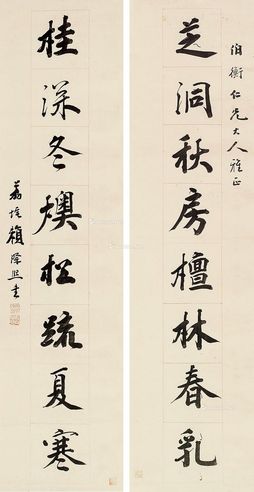 伯衡仁兄大人雅正
芝洞秋房檀林春乳
桂深冬燠松疏夏寒
荔垞賴際熙書